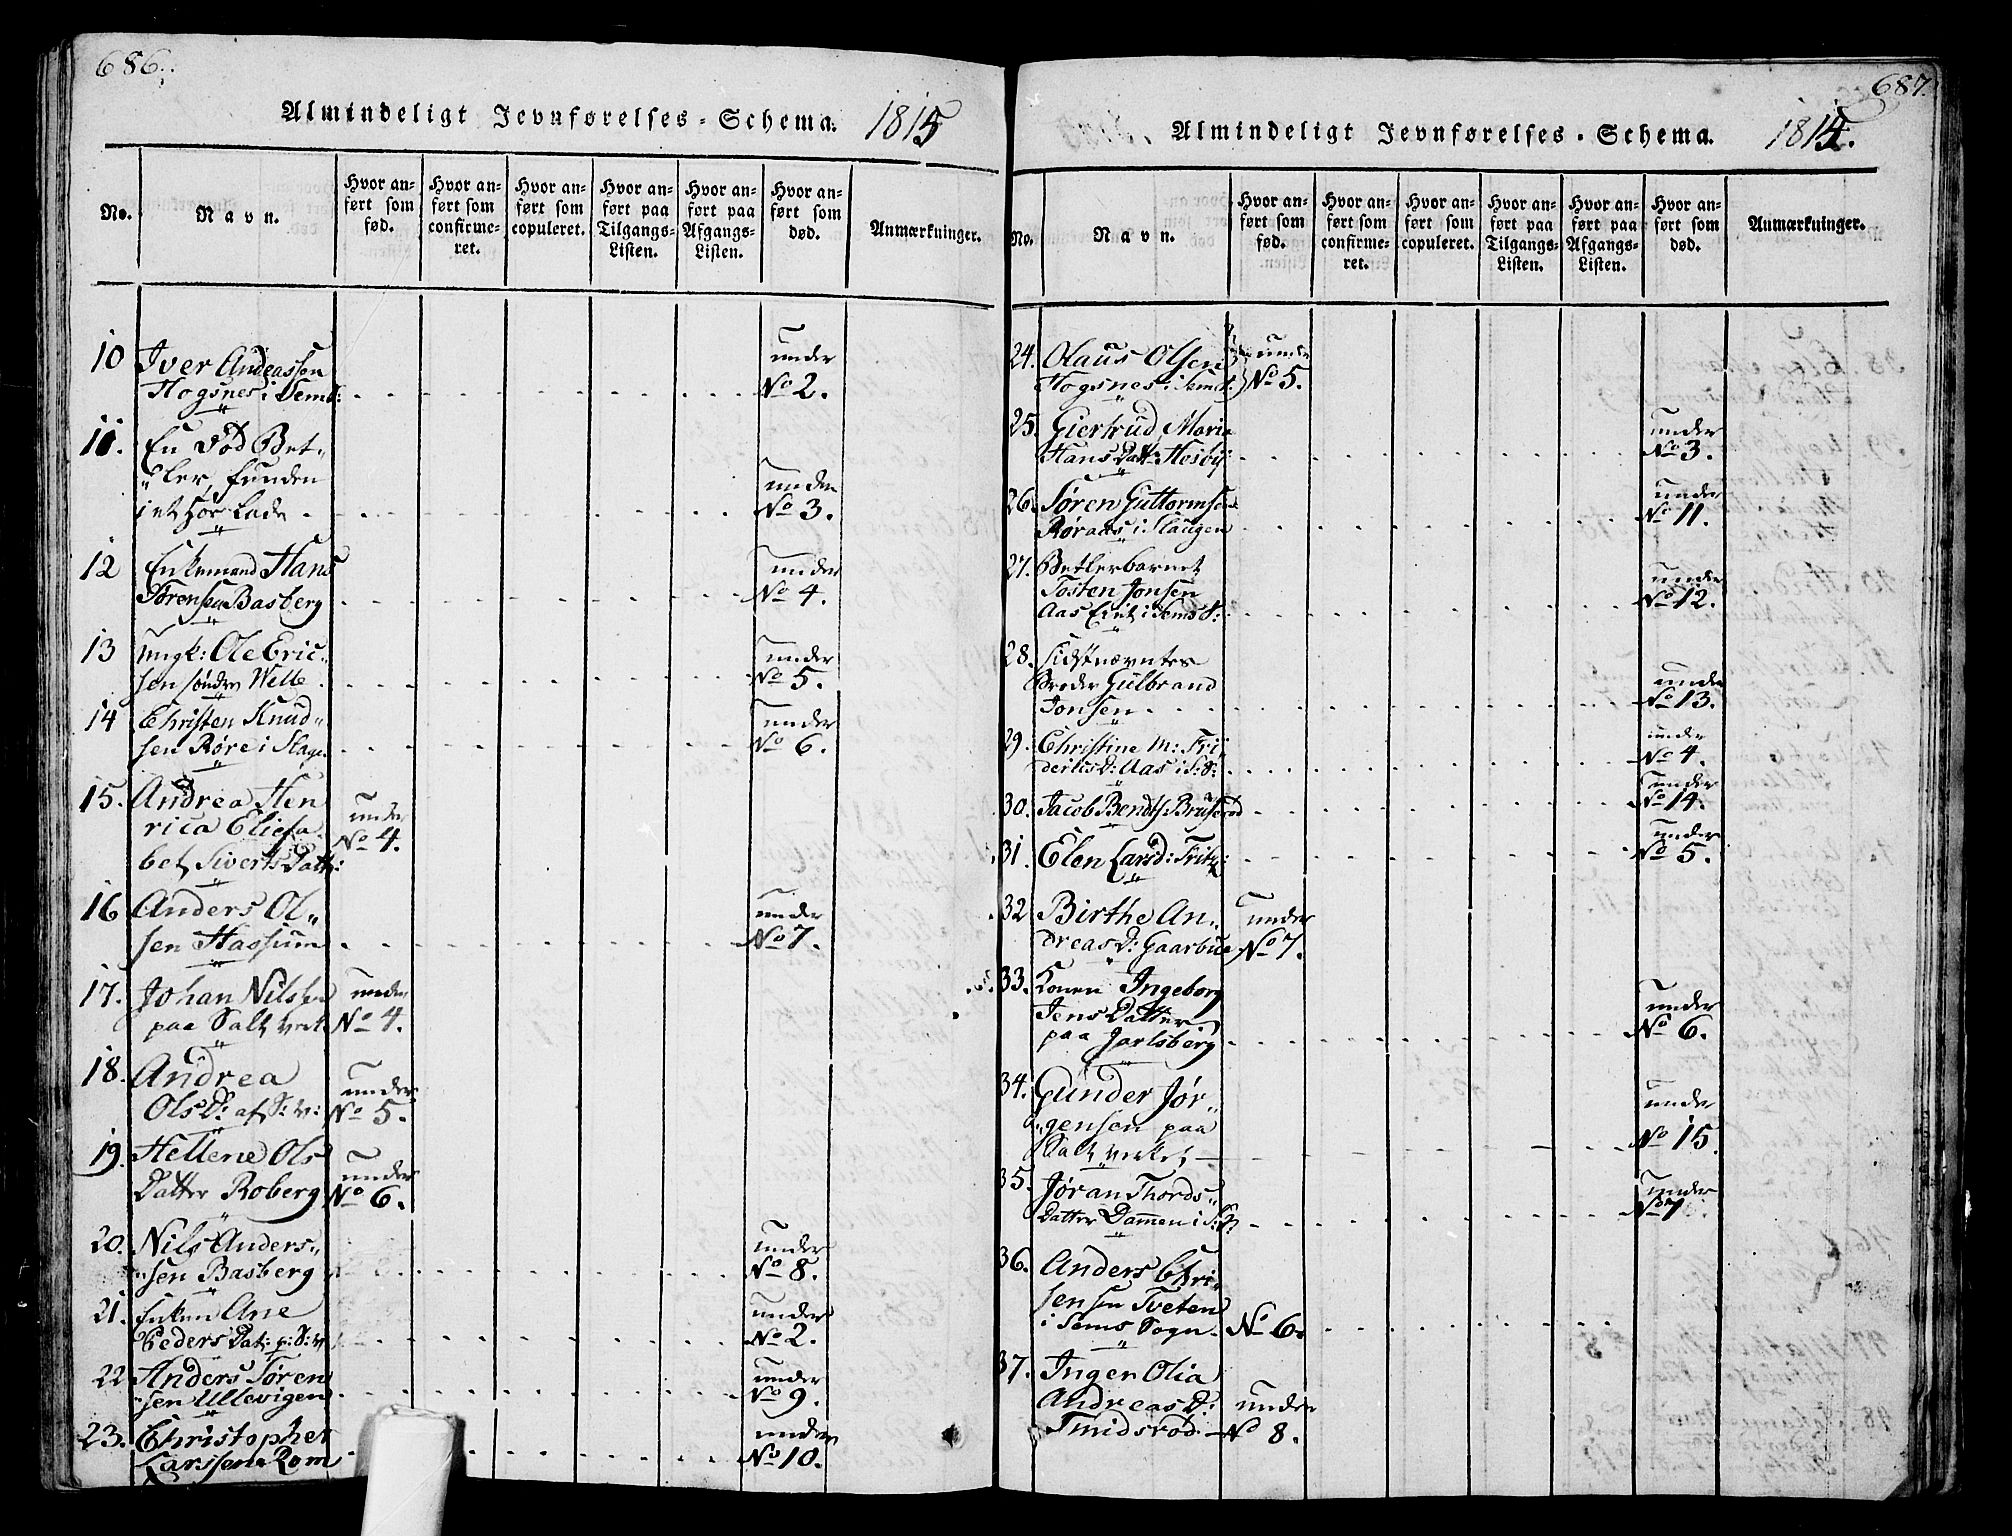 686.
Almindeligt Jevnførelses-Schema. 1815
No.
Navn.
Hvor anført som fød.
Hvor anført som confirmeret.
Hvor anført som copuleret.
Hvor anført paa Tilgangs-Listen.
Hvor anført paa Afgangs-Listen.
Hvor anført som død.
Anmærkninger.
10 Iver Andeassen
Hogsnes i Semb: under No 2.
11. En død Bet-
ler, funden
i et Hør Lade under No 3.
12 Enkemand Hans
Sørensen Basberg under No 4.
13 Ungk: Ole Eric-
sen søndre Welle under No 5.
14 Christen Knud-
sen Røre i Slage under No 6.
15. Andrea Hen
rica Eliesa
bet Siverts Datt: under No 4.
16 Anders Ol-
sen Hassum under No 7.
17. Johan Nilssen
paa Saltverk under No 4.
18. Andrea
Ols D: af S: v: under No 5.
19. Hellene Ols
Datter Roberg under No 6.
20. Nils Anders-
sen Basberg under No 8.
21. Enken Ane
Peders Dat: p: S: v: under No 2.
22 Anders Søren
sen Ullevigen under No 9.
23. Christopher
Larssen Rom under No 10.
687.
Almindeligt Jevnførelses-Schema. 1815.
No.
Navn.
Hvor anført som fød.
Hvor anført som confirmeret.
Hvor anført som copuleret.
Hvor anført paa Tilgangs-Listen.
Hvor anført paa Afgangs-Listen.
Hvor anført som død.
Anmærkninger.
24. Olaus Olsen
Hogsnes i Sem S: under No 5.
25. Giertrud Maria
Hans Datt: Hesby under No 3.
26. Søren Guttormsen
Røraas i Slaugen under No 11.
27. Betlerbarnet
Tosten Jonsen
Aas Eint i Sems S: under No 12.
28. Sidstnævntes
Broder Gulbrand
Jonsen under No 13.
29. Christine M: Fri
derics D: Aas i S: S: under No 4.
30. Jacob Bendts: Bruserød under No 14.
31. Elen Lars D: Fritz: under No 5.
32 Birthe An-
dreas D: Gaarbue under No 7.
33. Konen Ingeborg
Jens Datter
paa Jarlsberg under No 6.
34. Gunder Jør-
gensen paa
Saltverket under No 15.
35. Jøran Thords-
Datter Dammen i S: S: under No 7
36. Anders Chri-
stensen Tveten
i Sems Sogn. No 6.
37. Inger Olia
Andreas D:
Smidsrød under No 8.